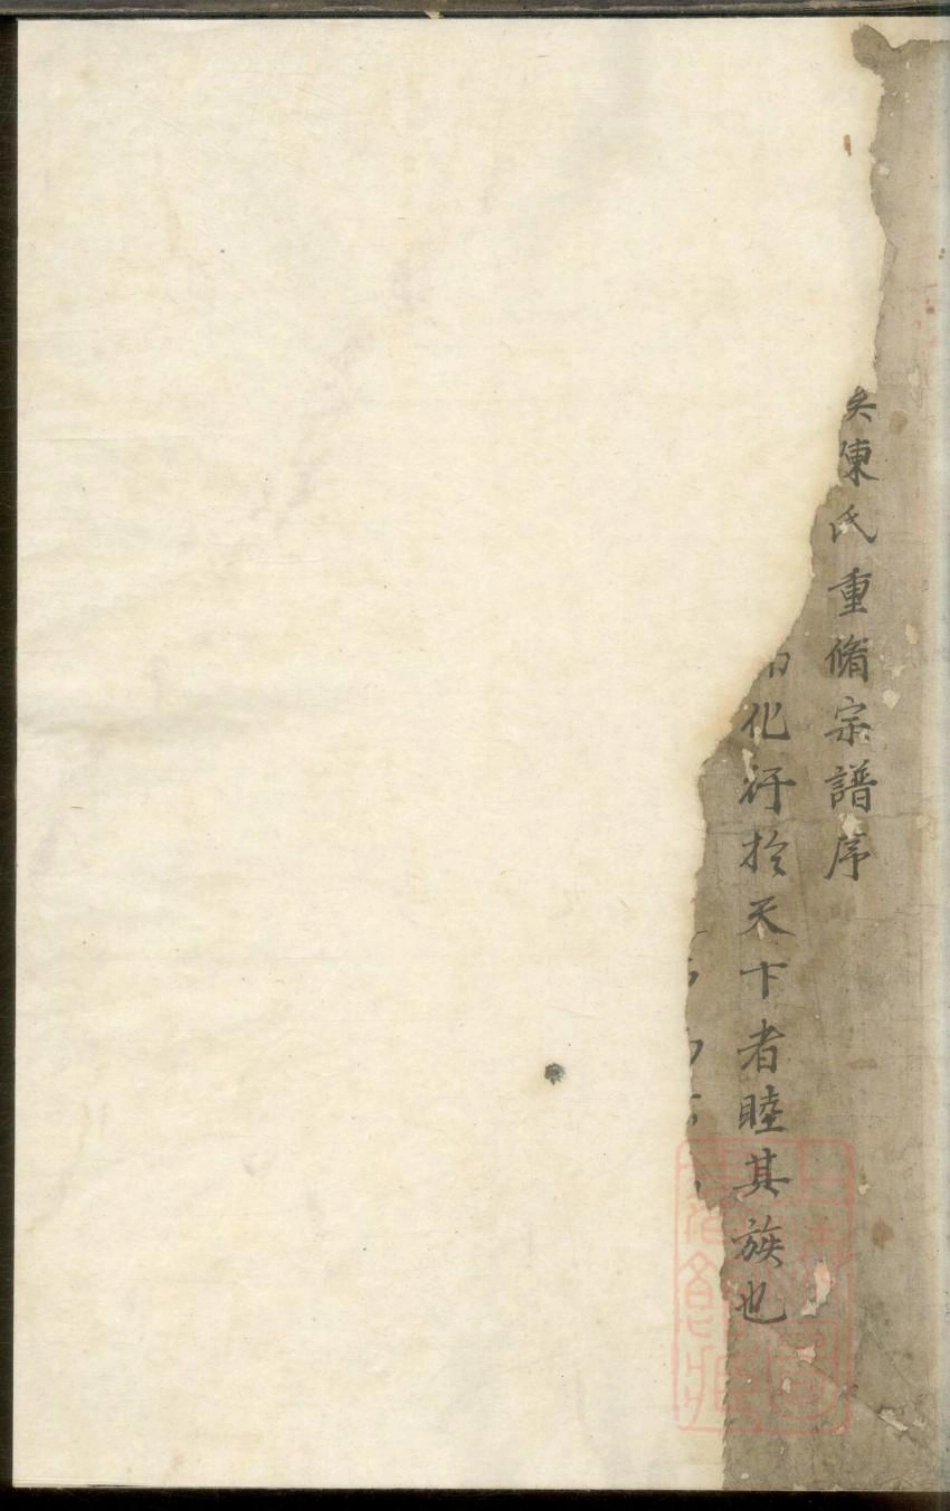 陳氏重脩宗譜序
化行於天下者睦其族也